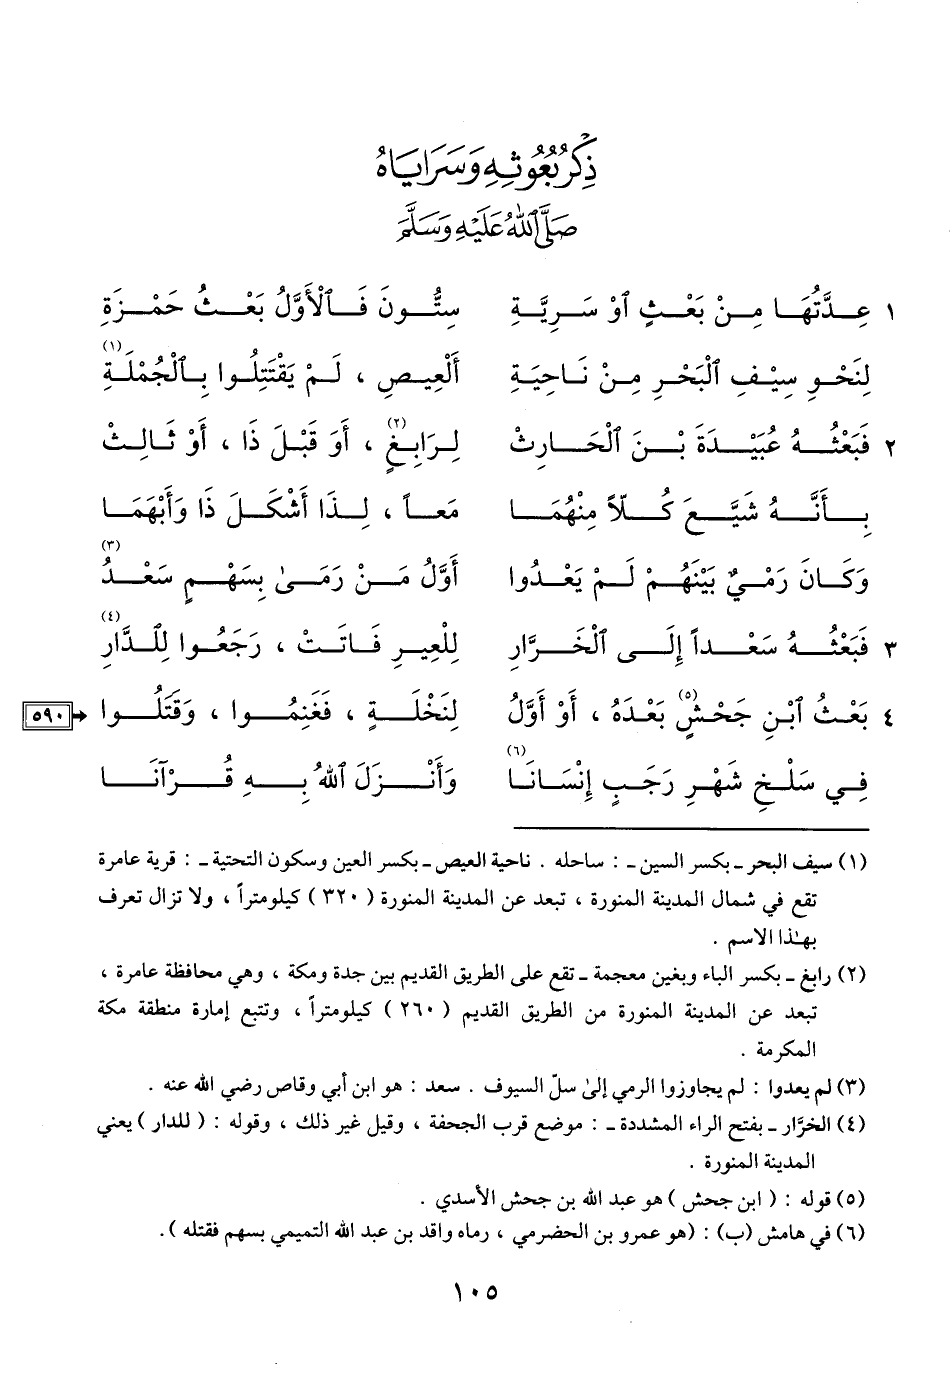 ذِكْرُ بُعُوثِهِ وَسَرَايَاهُ
صَلَّى ٱللهُ عَلَيْهِ وَسَلَّمَ
١ عِـدَّتُهَا مِنْ بَعْثٍ ٱوْ سَرِيَّةِ سِتُّونَ فَٱلْأَوَّلُ بَعْثُ حَمْزَةِ
لِنَحْوِ سِيْفِ ٱلْبَحْرِ مِنْ نَاحِيَةِ ٱلْعِيصِ ، لَمْ يَقْتَتِلُوا بِٱلْجُمْلَةِ (١)
٢ فَبَعْثُهُ عُبَيْدَةَ بْنَ ٱلْحَارِثْ لِرَابِغٍ (٢) ، أَوَ قَبْلَ ذَا ، أَوْ ثَالِثْ
بِأَنَّهُ شَيَّعَ كُلّاً مِنْهُمَا مَعاً ، لِذَا أَشْكَلَ ذَا وَأَبْهَمَا
وَكَانَ رَمْيٌ بَيْنَهُمْ لَمْ يَعْدُوا أَوَّلُ مَنْ رَمَىٰ بِسَهْمٍ سَعْدُ (٣)
٣ فَبَعْثُهُ سَعْداً إِلَى ٱلْخَرَّارِ لِلْعِيرِ فَاتَتْ ، رَجَعُوا لِلدَّارِ (٤)
٤ بَعْثُ ٱبْنِ جَحْشٍ (٥) بَعْدَهُ ، أَوْ أَوَّلُ لِنَخْلَةٍ ، فَغَنِمُوا ، وَقَتَلُوا ٥٩٠
فِي سَلْخِ شَهْرِ رَجَبٍ إِنْسَانَا (٦) وَأَنْزَلَ ٱللهُ بِهِ قُرْآنَا
(١) سيف البحر ـ بكسر السين ـ : ساحله . ناحية العيص ـ بكسر العين وسكون التحتية ـ : قرية عامرة
تقع في شمال المدينة المنورة ، تبعد عن المدينة المنورة ( ٣٢٠ ) كيلومتراً ، ولا تزال تعرف
بهـٰذا الاسم .
(٢) رابغ ـ بكسر الباء وبغين معجمة ـ تقع على الطريق القديم بين جدة ومكة ، وهي محافظة عامرة ،
تبعد عن المدينة المنورة من الطريق القديم ( ٢٦٠ ) كيلومتراً ، وتتبع إمارة منطقة مكة
المكرمة .
(٣) لم يعدوا : لم يجاوزوا الرمي إلىٰ سلّ السيوف . سعد : هو ابن أبي وقاص رضي الله عنه .
(٤) الخرَّار ـ بفتح الراء المشددة ـ : موضع قرب الجحفة ، وقيل غير ذلك ، وقوله : ( للدار ) يعني
المدينة المنورة .
(٥) قوله : ( ابن جحش ) هو عبد الله بن جحش الأسدي .
(٦) في هامش (ب) : (هو عمرو بن الحضرمي ، رماه واقد بن عبد الله التميمي بسهم فقتله ).
١٠٥